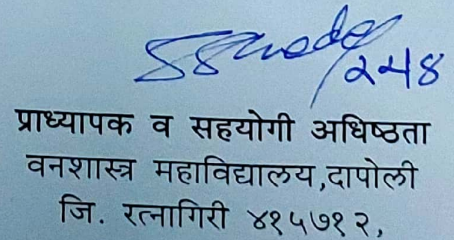 प्राध्यापक व सहयोगी अधिष्ठता
वनशास्त्र महाविद्यालय,दापोली
जि. रत्नागिरी ४१५७१२,